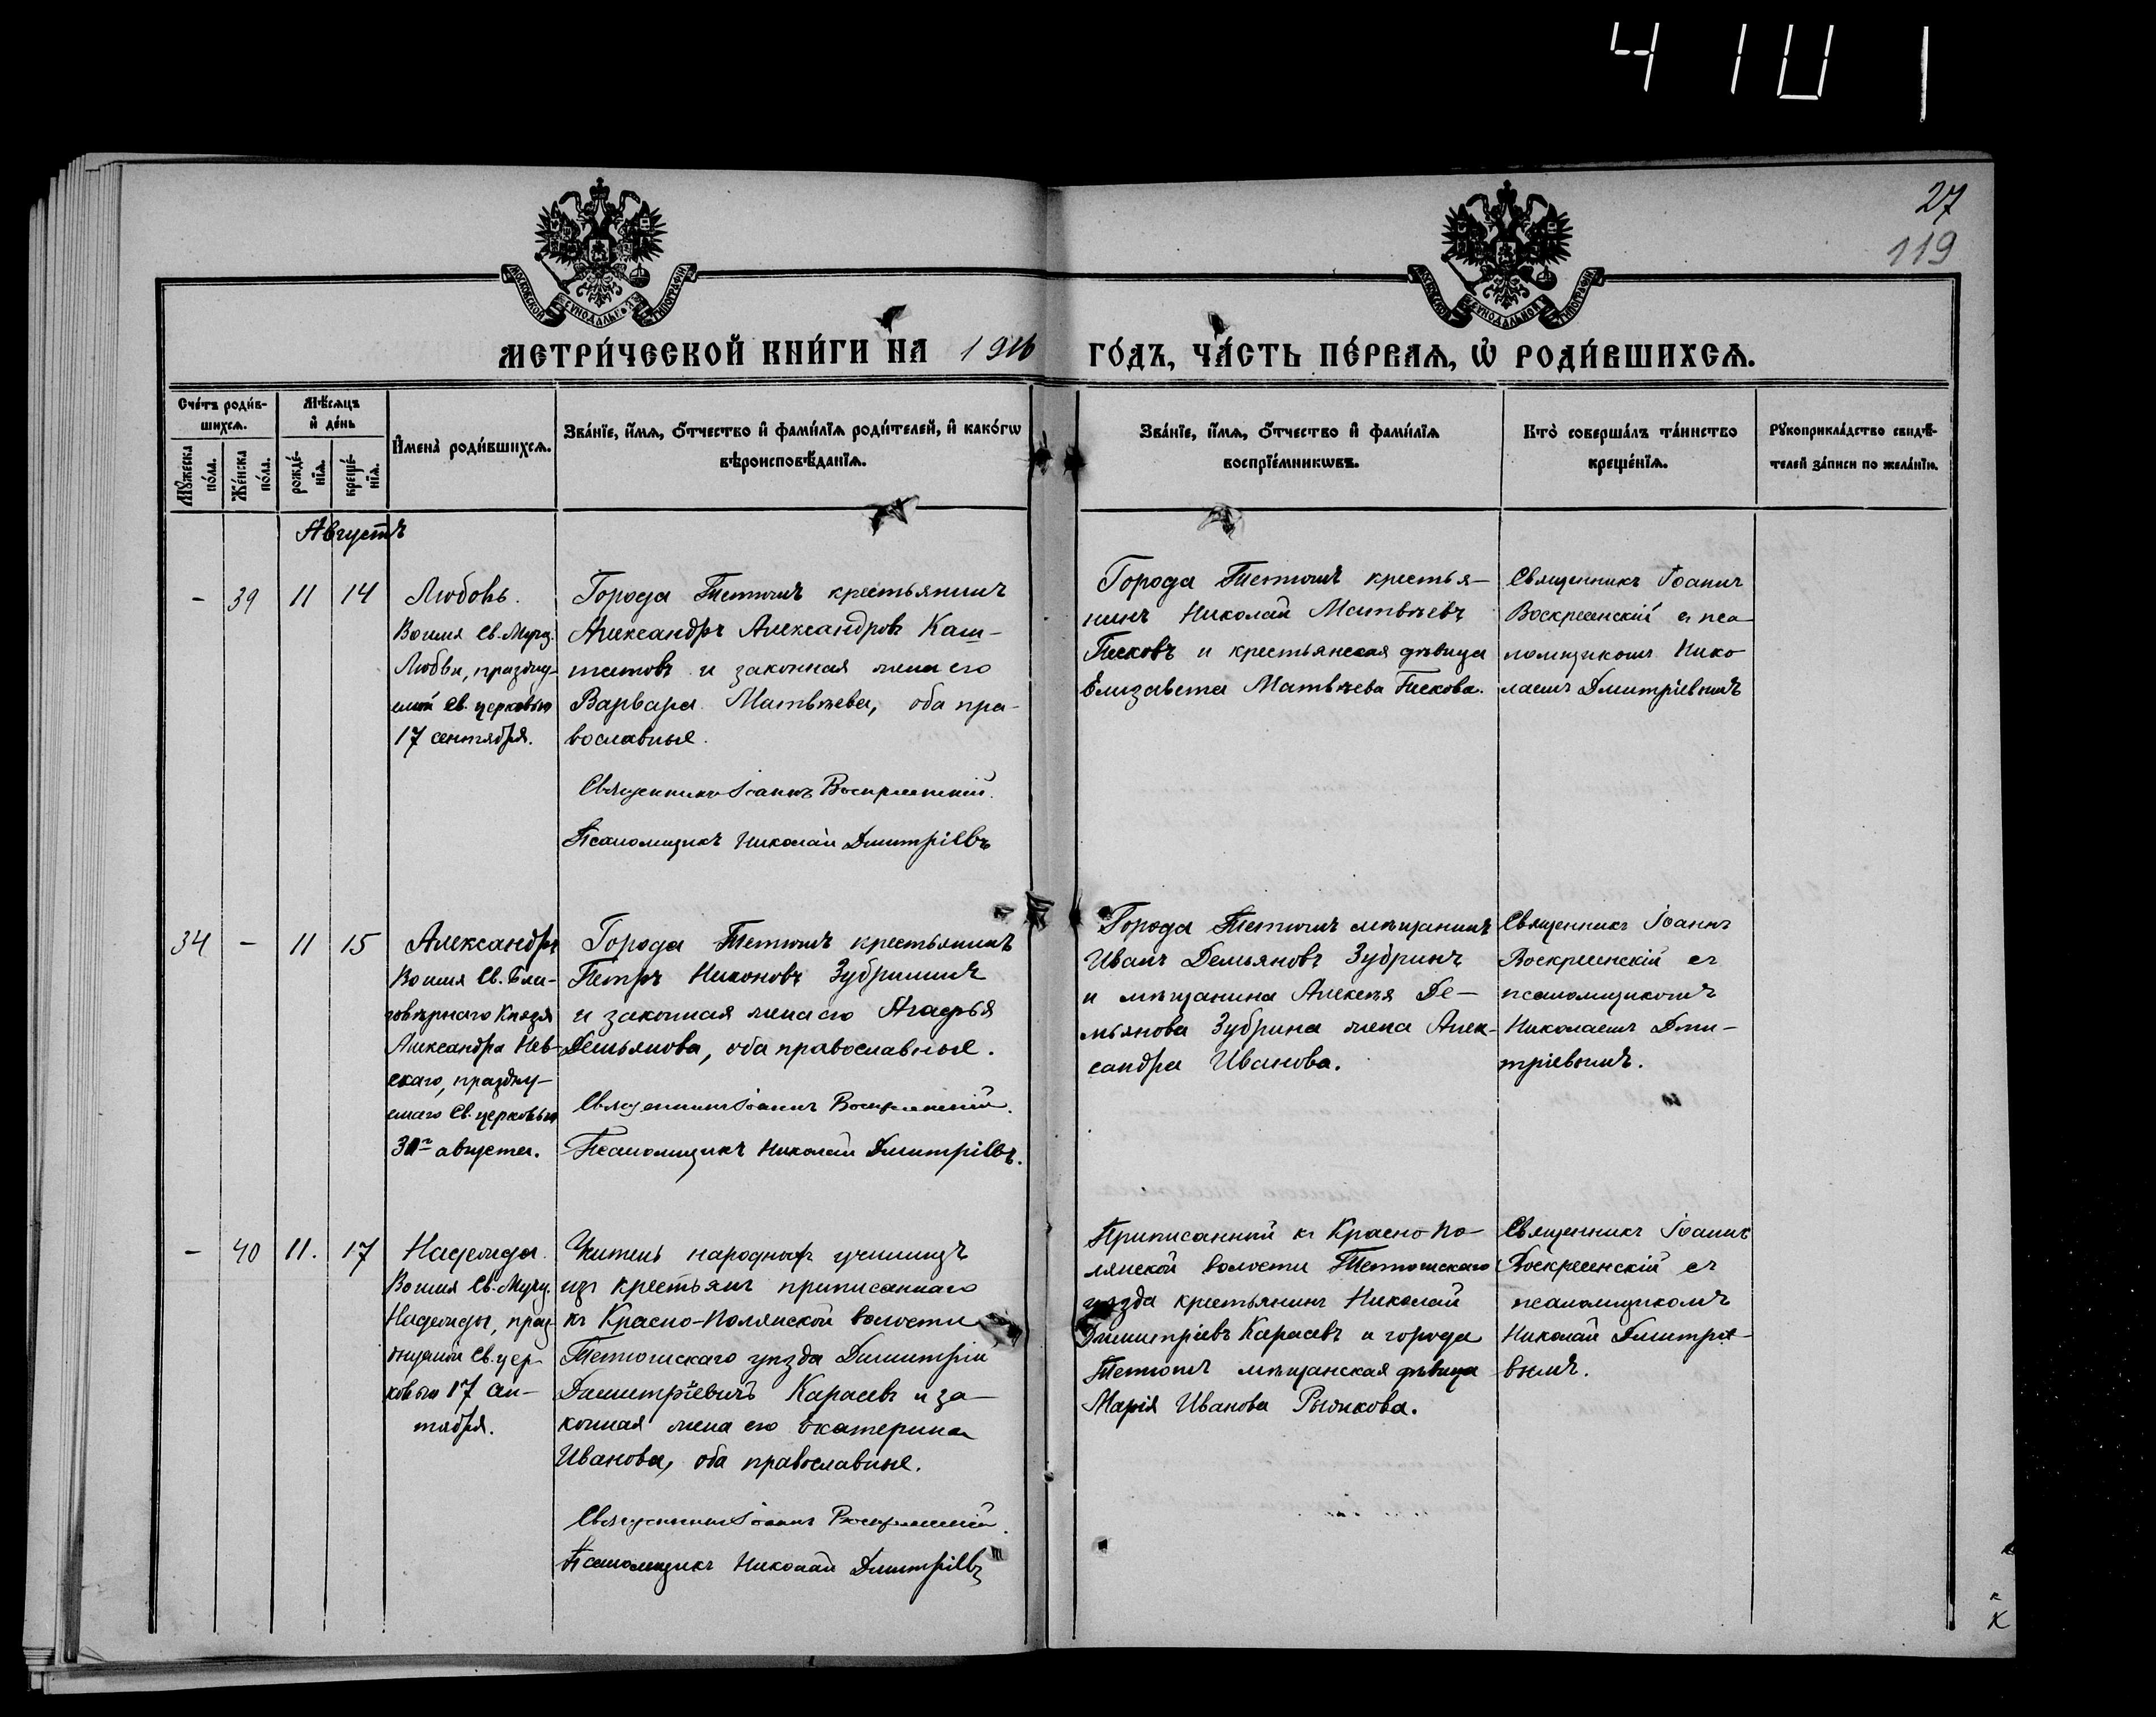 4 10 1
27
119
МОСКОВСКОЙ СУНОДАЛЬНОЙ ТИПОГРАФІИ
МОСКОВСКОЙ СУНОДАЛЬНОЙ ТИПОГРАФІИ
МЕТРИ́ЧЕСКОЙ КНИ́ГИ НА 1916 ГО́ДЪ, ЧА́СТЬ ПЕ́РВАѦ, Ѡ РОДИ́ВШИХСѦ.
Сче́тъ роди́в-
шихсѧ.
Мꙋ́жеска
по́ла.
Же́нска
по́ла.
Мѣ́сѧцъ
и҆ де́нь
рожде́-
нїѧ.
креще́-
нїѧ.
И҆мена̀ роди́вшихсѧ.
Зва́нїе, и҆́мѧ, ѻ҆́тчество и҆ фами́лїѧ роди́телей, и҆ како́гѡ
вѣроисповѣ́данїѧ.
Зва́нїе, и҆́мѧ, ѻ҆́тчество и҆ фами́лїѧ
воспрїе́мникѡвъ.
Кто̀ соверша́лъ та́инство
креще́нїѧ.
Рꙋкоприкла́дство свидѣ́-
телей за́писи по жела́нїю.
Августъ
- 39 11 14
Любовь.
Во имя Св. Муч.
Любви, праздну-
емой Св. церковью
17 сентября.
Города Тетюшъ крестьянинъ
Александръ Александровъ Каш-
татовъ и законная жена его
Варвара Матвѣева, оба пра-
вославные.
Священникъ Іоаннъ Воскресенскій.
Псаломщикъ Николай Дмитріевъ
Города Тетюшъ крестья-
нинъ Николай Матвѣевъ
Песковъ и крестьянская дѣвица
Елизавета Матвѣева Пескова.
Священникъ Іоаннъ
Воскресенскій съ пса-
ломщикомъ Нико-
лаемъ Дмитріевымъ
34 - 11 15
Александръ
Во имя Св. Бла-
говѣрнаго Князя
Александра Нев-
скаго, праздну-
емаго Св. церковью
30го августа.
Города Тетюшъ крестьянинъ
Петръ Никоновъ Зубрилинъ
и законная жена его Агафья
Демьянова, оба православные.
Священникъ Іоаннъ Воскресенскій.
Псаломщикъ Николай Дмитріевъ.
Города Тетюшъ мѣщанинъ
Иванъ Демьяновъ Зубринъ
и мѣщанина Алексѣя Де-
мьянова Зубрина жена Алек-
сандра Иванова.
Священникъ Іоаннъ
Воскресенскій съ
псаломщикомъ
Николаемъ Дми-
тріевымъ.
- 40 11. 17
Надежда.
Во имя Св. Муч.
Надежды, праз-
днуемой Св. цер-
ковью 17 сен-
тября.
Учитель народныхъ училищъ
изъ крестьянъ приписаннаго
къ Красно-Полянской волости
Тетюшскаго уѣзда Димитрій
Димитріевичъ Карасевъ и за-
конная жена его Екатерина
Иванова, оба православные.
Священникъ Іоаннъ Воскресенскій.
Псаломщикъ Николай Дмитріевъ
Приписанный къ Красно-По-
лянской волости Тетюшскаго
уѣзда крестьянинъ Николай
Димитріевъ Карасевъ и города
Тетюшъ мѣщанская дѣвица
Марія Иванова Рыжкова.
Священникъ Іоаннъ
Воскресенскій съ
псаломщикомъ
Николай Дмитріе-
вымъ.